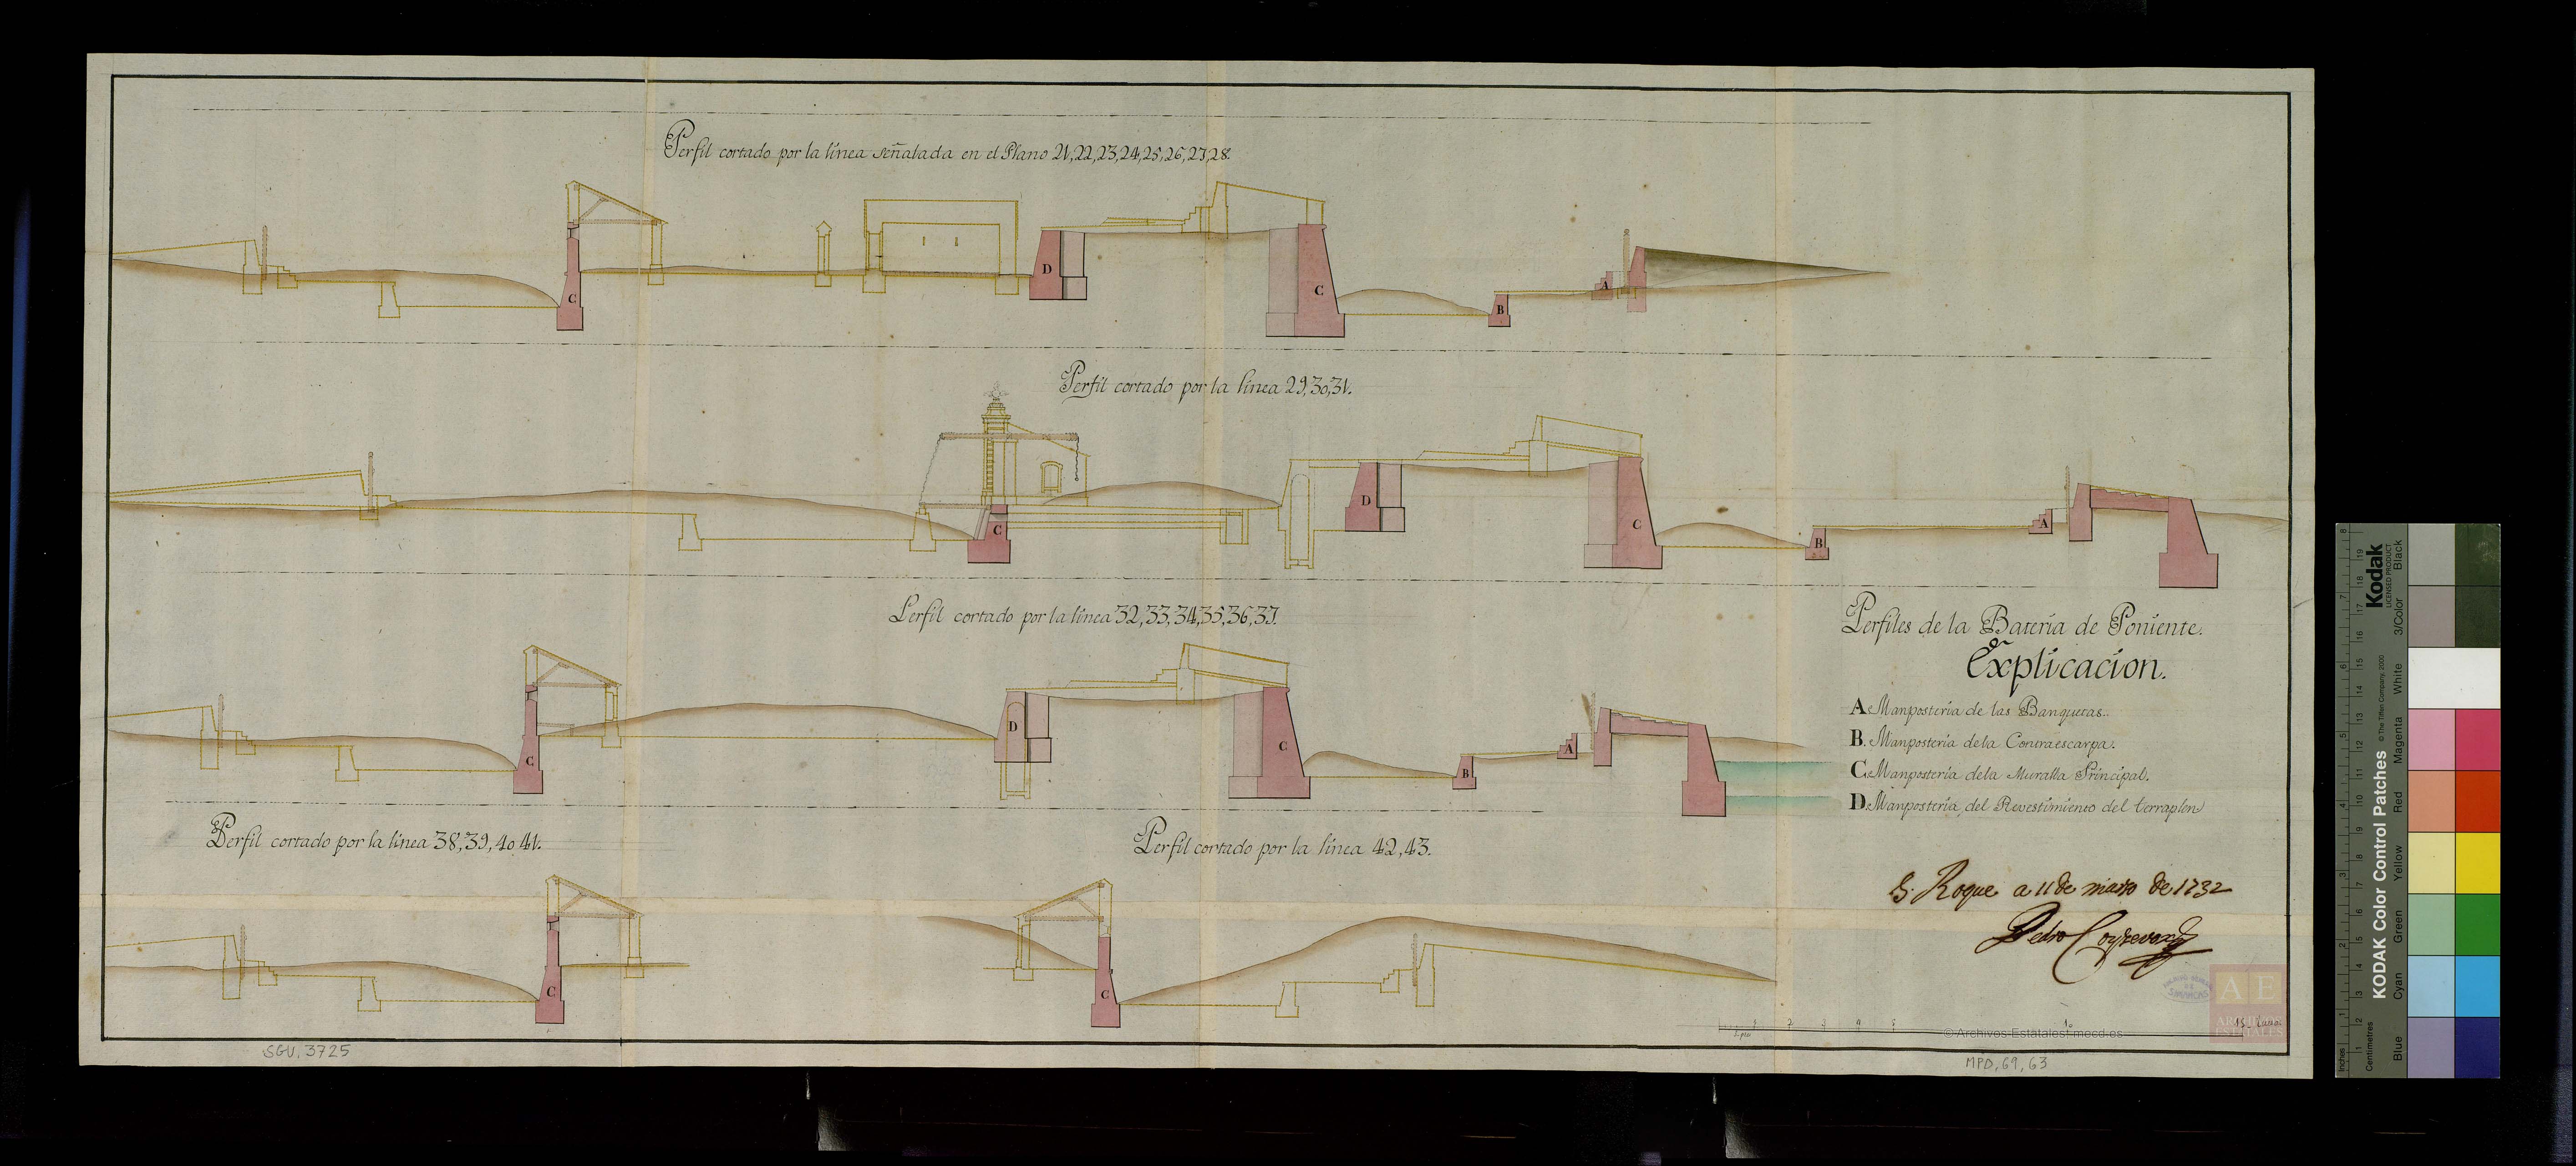 Perfil cortado por la linea señalada en el Plano 21,22,23,24,25,26,27,28.
D
C
C
B
A
Perfil cortado por la linea 29,30,31.
C
D
C
B
A
Perfil cortado por la linea 32,33,34,35,36,37.
C
D
C
B
A
Perfiles de la Bateria de Poniente.
Explicacion.
A. Manposteria de las Banquetas.
B. Manposteria dela Contraescarpa.
C. Manposteria dela Muralla Principal.
D. Manposteria del Revestimiento del terraplen
Perfil cortado por la linea 38,39,40 41.
Perfil cortado por la linea 42,43.
C
C
S. Roque a 11 de marzo de 1732
Pedro
ARCHIVO GENERAL DE SIMANCAS
AE
ARCHIVOS ESTATALES
© Archivos Estatales, mecd.es
SGU, 3725
MPD, 69, 63
Kodak
LICENSED PRODUCT
KODAK Color Control Patches
© The Tiffen Company, 2000
Black
3/Color
White
Magenta
Red
Yellow
Green
Cyan
Blue
Inches
1 2 3 4 5 6 7 8
Centimetres
1 2 3 4 5 6 7 8 9 10 11 12 13 14 15 16 17 18 19